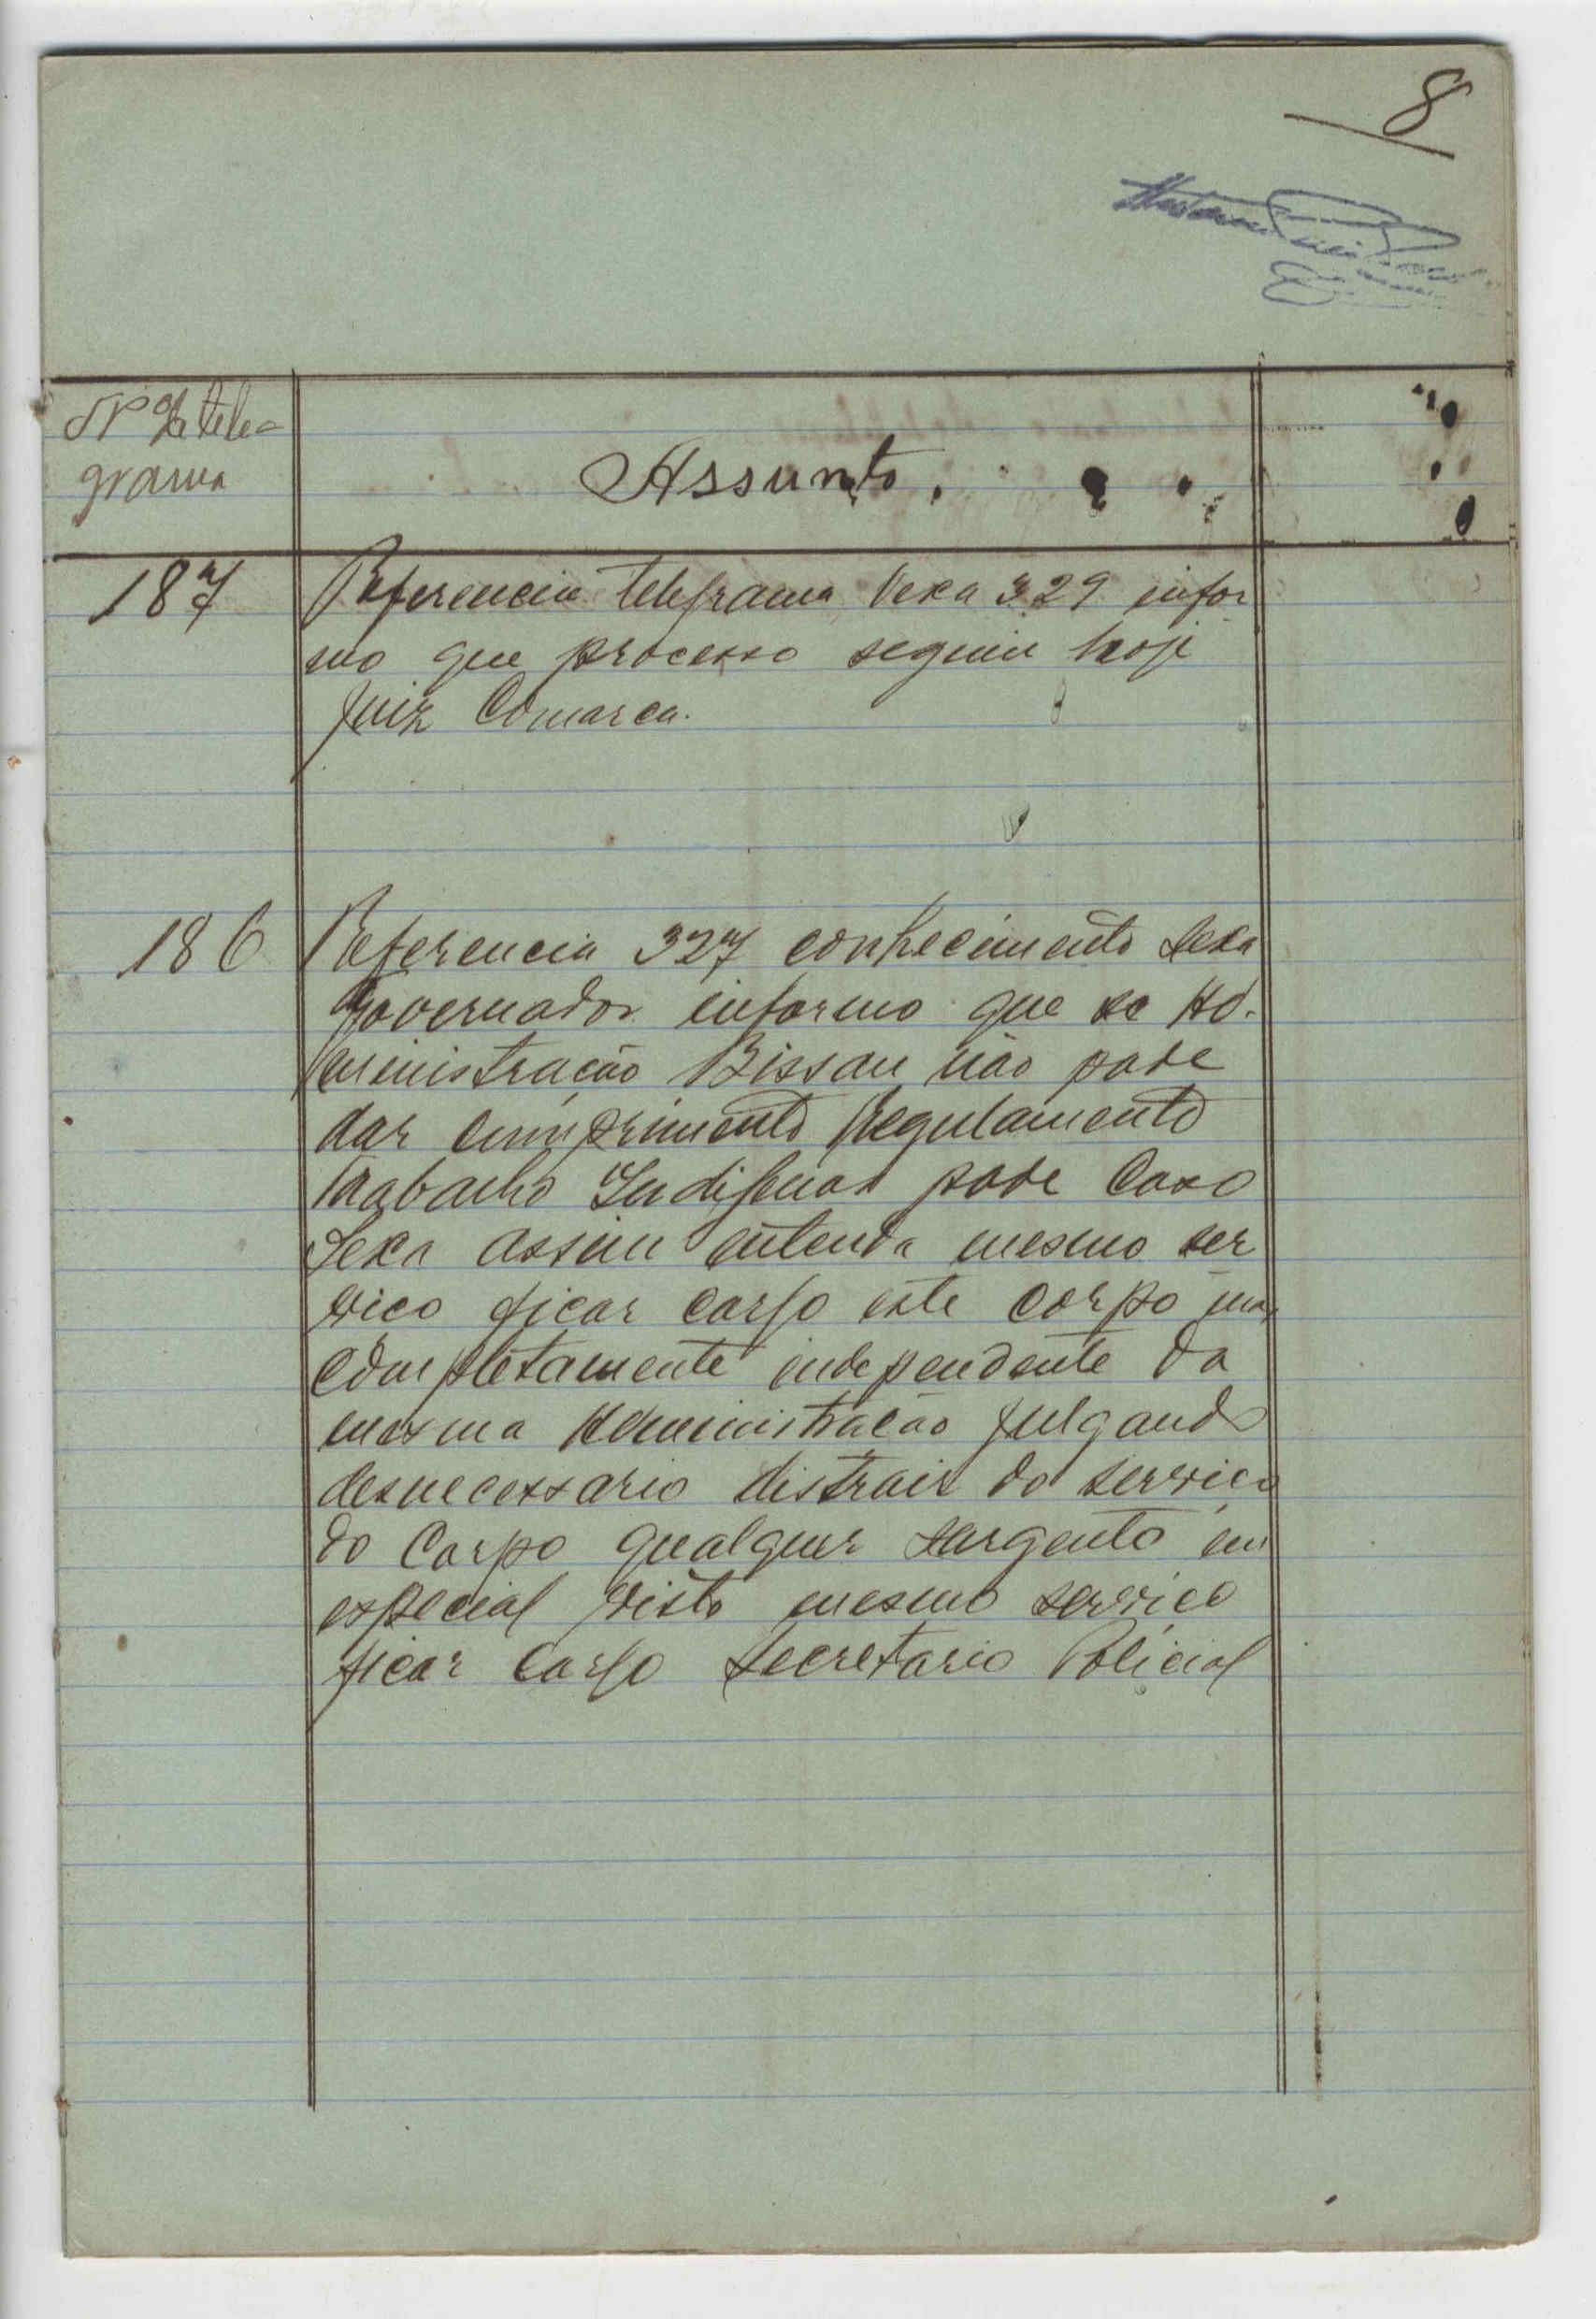 8
Nº de tele=
grama
Assunto.
187
Referencia telegrama Vexa 329 infor
mo que processo seguiu hoje
Juiz Comarca.
186
Referencia 327 conhecimento Sexa
Governador informo que se Ad-
ministração Bissau não pode
dar cumprimento Regulamento
Trabalho Indigenas pode caso
Sexa assim entenda mesmo ser
viço ficar cargo este corpo mas
completamente independente da
mesma Administração julgando
desnecessario distrair do serviço
do Corpo qualquer sargento em
especial visto mesmo serviço
ficar cargo Secretario Policial